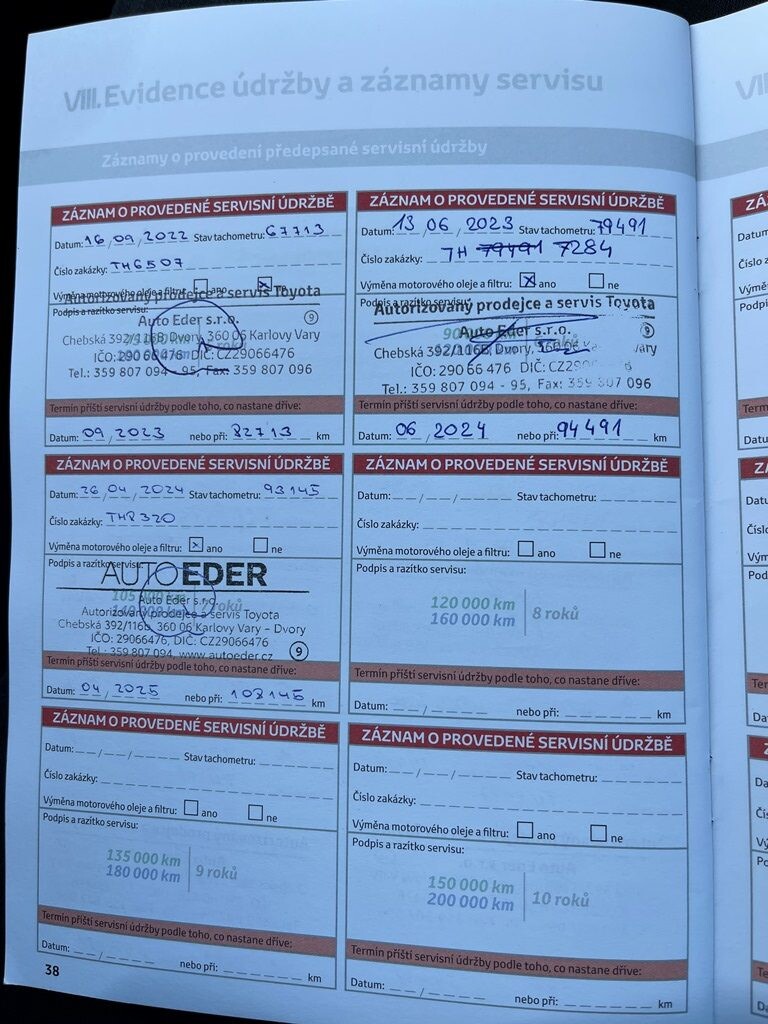 VIII. Evidence údržby a záznamy servisu
Záznamy o provedení předepsané servisní údržby
ZÁZNAM O PROVEDENÉ SERVISNÍ ÚDRŽBĚ
Datum: 16/09/2022 Stav tachometru: 67713
Číslo zakázky: TH6507
Výměna motorového oleje a filtru: ano ne
Podpis a razítko servisu:
Autorizovaný prodejce a servis Toyota
Auto Eder s.r.o. 9
Chebská 392/116B, Dvory, 360 06 Karlovy Vary
IČO: 290 66 476 DIČ: CZ29066476
Tel.: 359 807 094 - 95, Fax: 359 807 096
Termín příští servisní údržby podle toho, co nastane dříve:
Datum: 09/2023 nebo při: 82713 km
ZÁZNAM O PROVEDENÉ SERVISNÍ ÚDRŽBĚ
Datum: 13/06/2023 Stav tachometru: 79491
Číslo zakázky: TH 79491 7284
Výměna motorového oleje a filtru: ano ne
Podpis a razítko servisu:
Autorizovaný prodejce a servis Toyota
Auto Eder s.r.o. 9
Chebská 392/116B, Dvory, 360 06 Vary
IČO: 290 66 476 DIČ: CZ29
Tel.: 359 807 094 - 95, Fax: 359 807 096
Termín příští servisní údržby podle toho, co nastane dříve:
Datum: 06/2024 nebo při: 94491 km
ZÁZNAM O PROVEDENÉ SERVISNÍ ÚDRŽBĚ
Datum: 26/04/2024 Stav tachometru: 93145
Číslo zakázky: TH8320
Výměna motorového oleje a filtru: ano ne
Podpis a razítko servisu:
AUTOEDER
105 000 km
140 000 km
7 roků
Auto Eder s.r.o.
Autorizovaný prodejce a servis Toyota
Chebská 392/116b, 360 06 Karlovy Vary – Dvory
IČO: 29066476, DIČ: CZ29066476
Tel.: 359 807 094, www.autoeder.cz 9
Termín příští servisní údržby podle toho, co nastane dříve:
Datum: 04/2025 nebo při: 108145 km
ZÁZNAM O PROVEDENÉ SERVISNÍ ÚDRŽBĚ
Datum: __/__/____ Stav tachometru:
Číslo zakázky:
Výměna motorového oleje a filtru: ano ne
Podpis a razítko servisu:
120 000 km
160 000 km
8 roků
Termín příští servisní údržby podle toho, co nastane dříve:
Datum: __/____ nebo při: ______ km
ZÁZNAM O PROVEDENÉ SERVISNÍ ÚDRŽBĚ
Datum: __/__/____ Stav tachometru:
Číslo zakázky:
Výměna motorového oleje a filtru: ano ne
Podpis a razítko servisu:
135 000 km
180 000 km
9 roků
Termín příští servisní údržby podle toho, co nastane dříve:
Datum: __/____ nebo při: ______ km
ZÁZNAM O PROVEDENÉ SERVISNÍ ÚDRŽBĚ
Datum: __/__/____ Stav tachometru:
Číslo zakázky:
Výměna motorového oleje a filtru: ano ne
Podpis a razítko servisu:
150 000 km
200 000 km
10 roků
Termín příští servisní údržby podle toho, co nastane dříve:
Datum: __/____ nebo při: ______ km
38